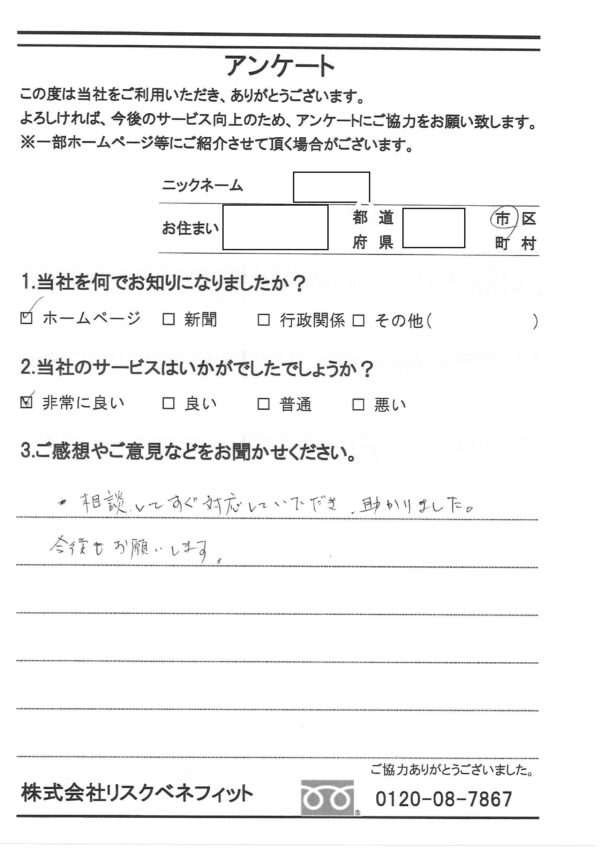 アンケート
この度は当社をご利用いただき、ありがとうございます。
よろしければ、今後のサービス向上のため、アンケートにご協力をお願い致します。
※一部ホームページ等にご紹介させて頂く場合がございます。
ニックネーム
お住まい 都道府県 市区町村
1.当社を何でお知りになりましたか？
☑ ホームページ □ 新聞 □ 行政関係 □ その他( )
2.当社のサービスはいかがでしたでしょうか？
☑ 非常に良い □ 良い □ 普通 □ 悪い
3.ご感想やご意見などをお聞かせください。
・相談してすぐ対応していただき、助かりました。
今後もお願いします。
ご協力ありがとうございました。
株式会社リスクベネフィット 0120-08-7867